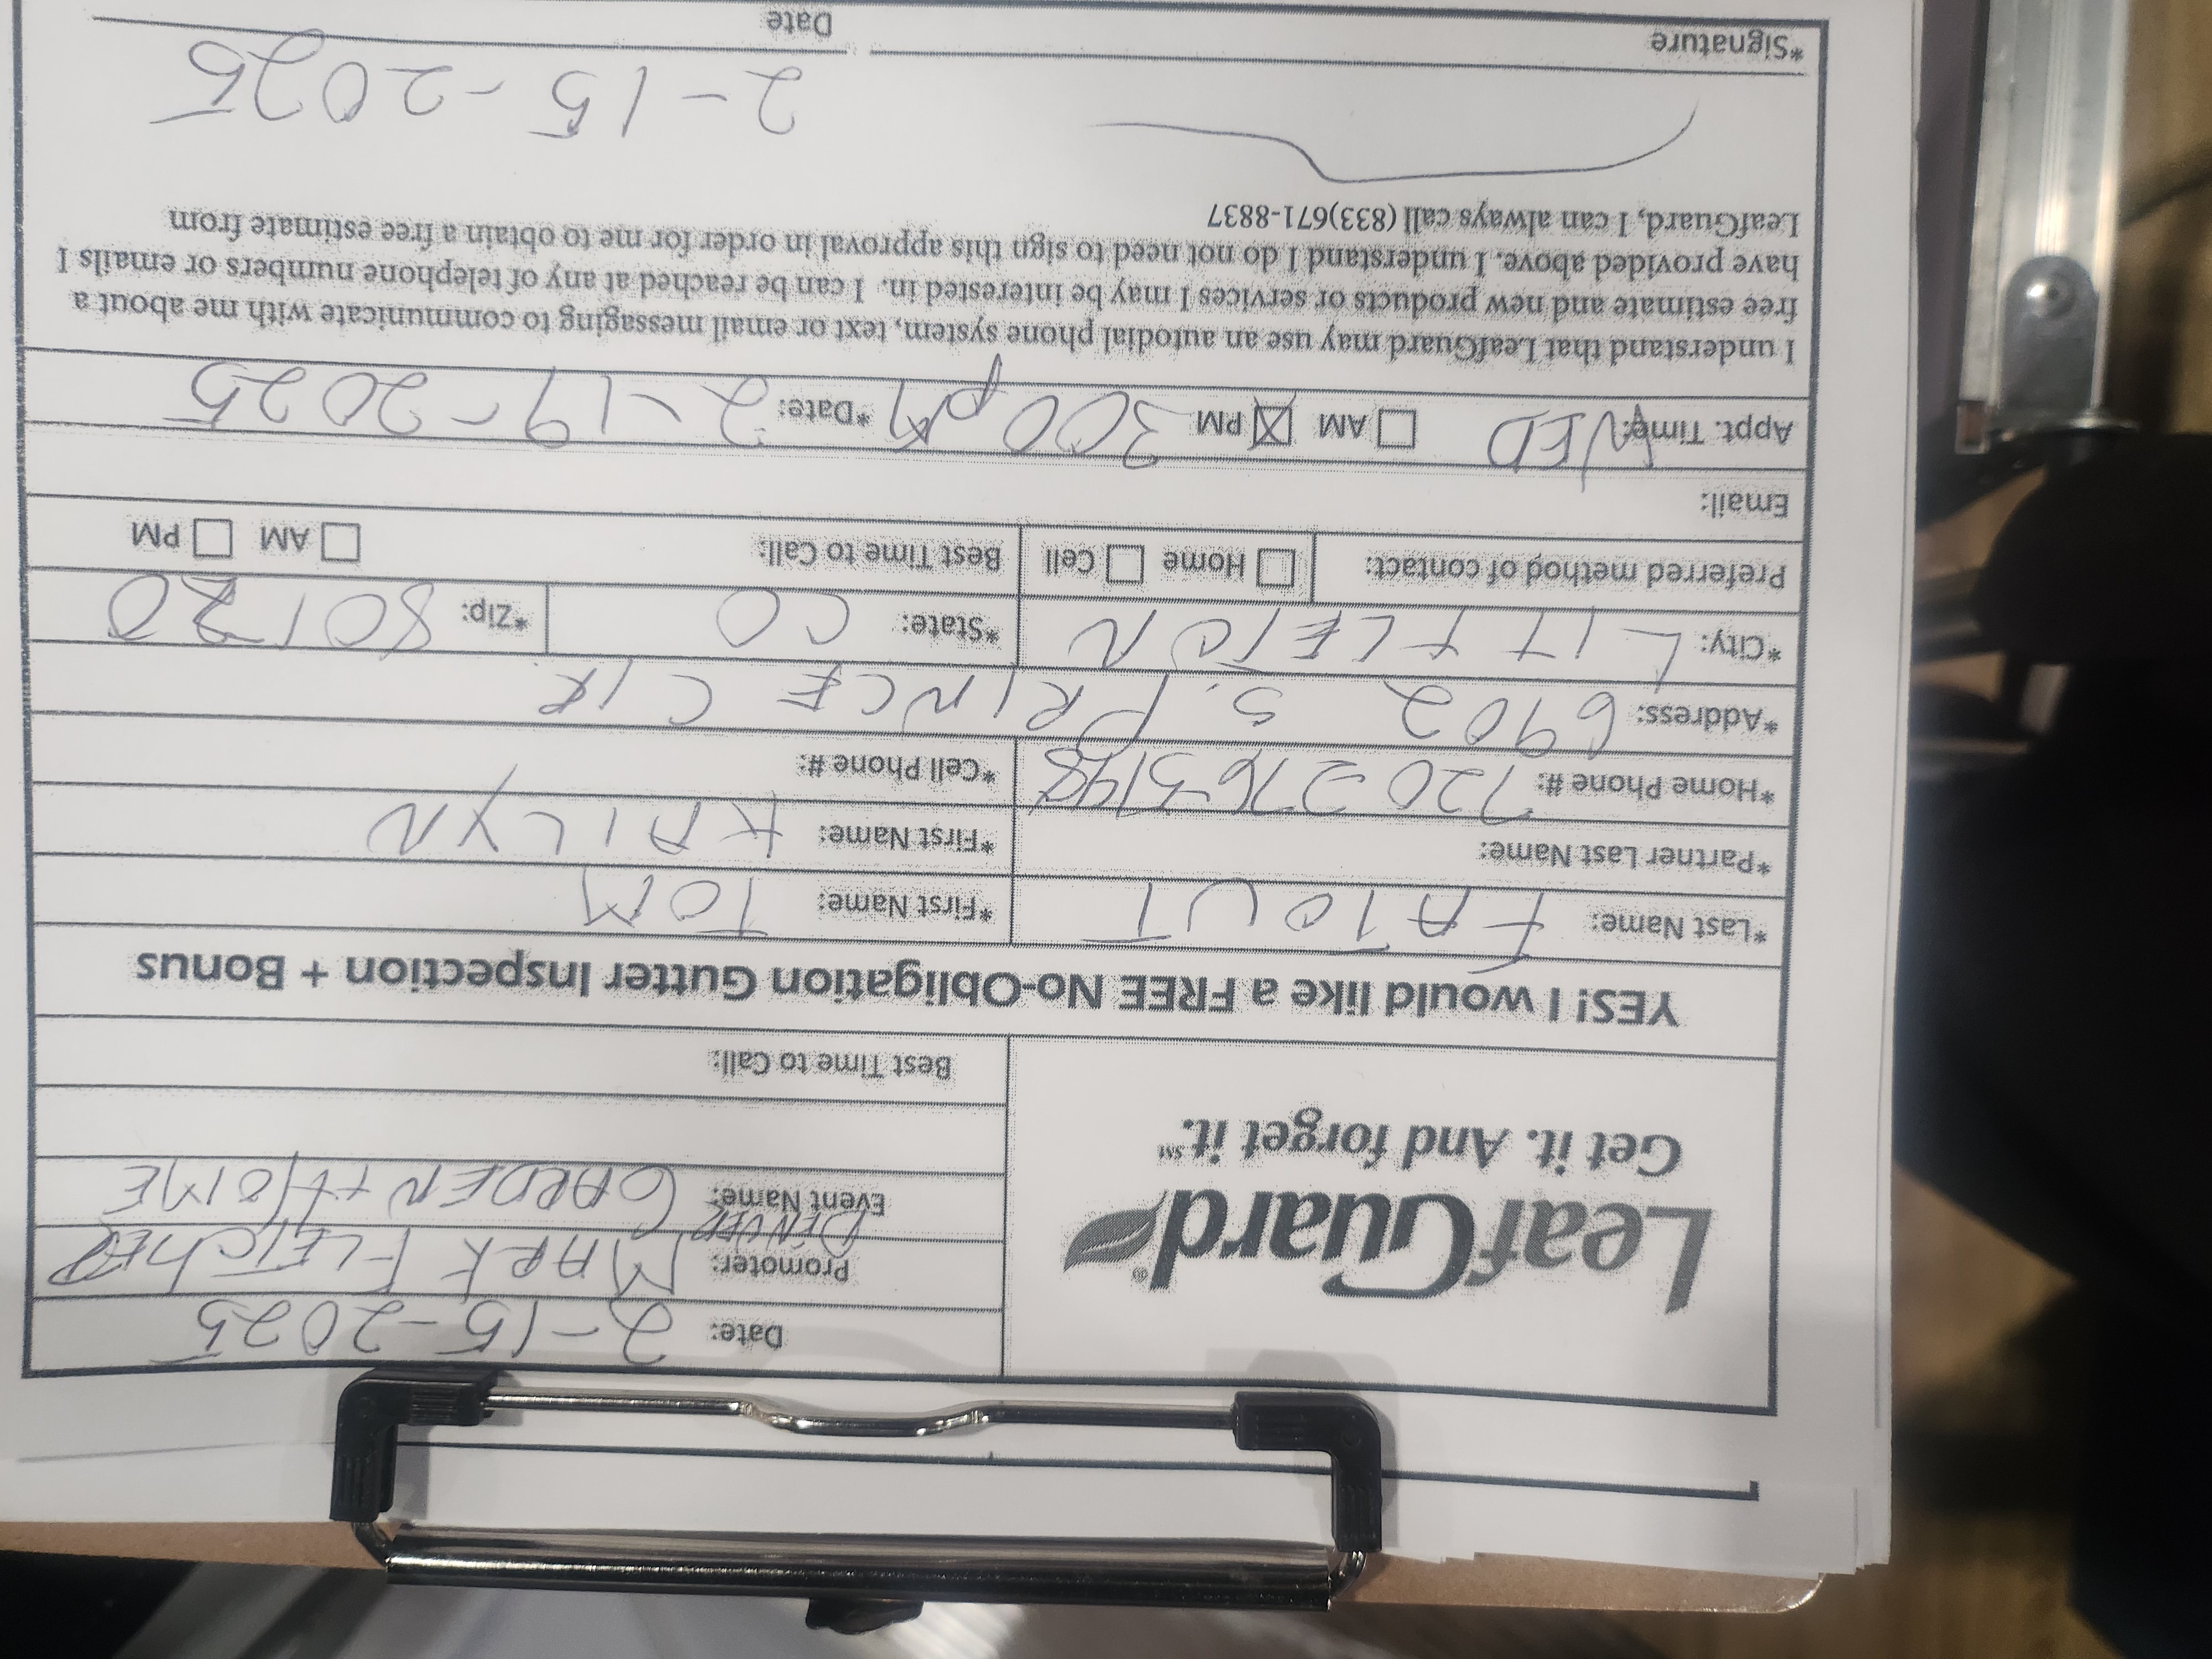 LeafGuard®
Get it. And forget it.℠
Date: 2-15-2025
Promoter: MARK FLETChER
DENVER
Event Name: GARDEN + HOME
Best Time to Call:
YES! I would like a FREE No-Obligation Gutter Inspection + Bonus
*Last Name: FATOUT *First Name: TOM
*Partner Last Name: *First Name: KAILYN
*Home Phone #: 720-276-5148 *Cell Phone #:
*Address: 6902 S. PRINCE CIR.
*City: LITTLETON *State: CO *Zip: 80120
Preferred method of contact: Home Cell Best Time to Call: AM PM
Email:
Appt. Time: WED AM PM 300 pM *Date: 2-19-2025
I understand that LeafGuard may use an autodial phone system, text or email messaging to communicate with me about a
free estimate and new products or services I may be interested in. I can be reached at any of telephone numbers or emails I
have provided above. I understand I do not need to sign this approval in order for me to obtain a free estimate from
LeafGuard, I can always call (833)671-8837
2-15-2025
*Signature Date